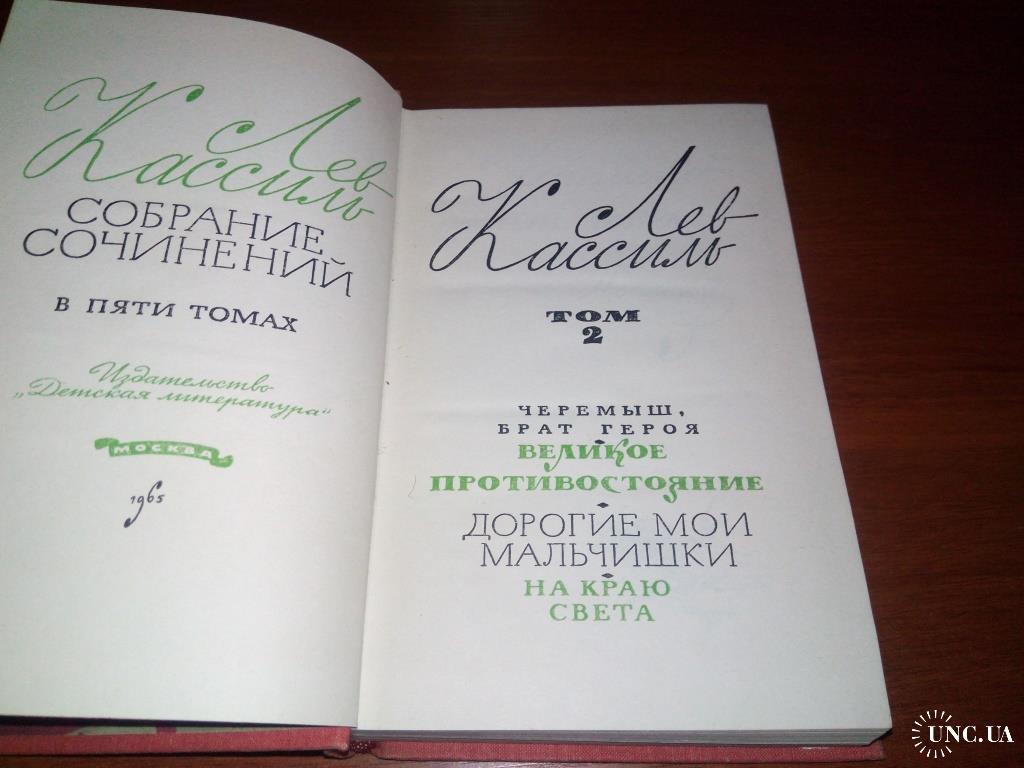 Лев
Кассиль
СОБРАНИЕ
СОЧИНЕНИЙ
В ПЯТИ ТОМАХ
Издательство
„Детская литература“
МОСКВА
1965
Лев
Кассиль
ТОМ
2
ЧЕРЕМЫШ,
БРАТ ГЕРОЯ
ВЕЛИКОЕ
ПРОТИВОСТОЯНИЕ
ДОРОГИЕ МОИ
МАЛЬЧИШКИ
НА КРАЮ
СВЕТА
UNC.UA